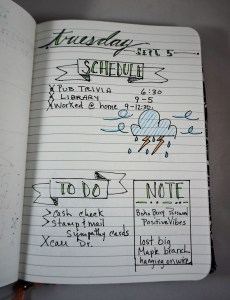 Tuesday
SEPT. 5
SCHEDULE
X PUB TRIVIA 6:30
X LIBRARY 9-5
X Worked @ home 9-12:30
TO DO
> Cash check
> Stamp & mail
Sympathy cards
X Call Dr.
NOTE
Positive Vibes
lost big
Maple branch
hanging on wire